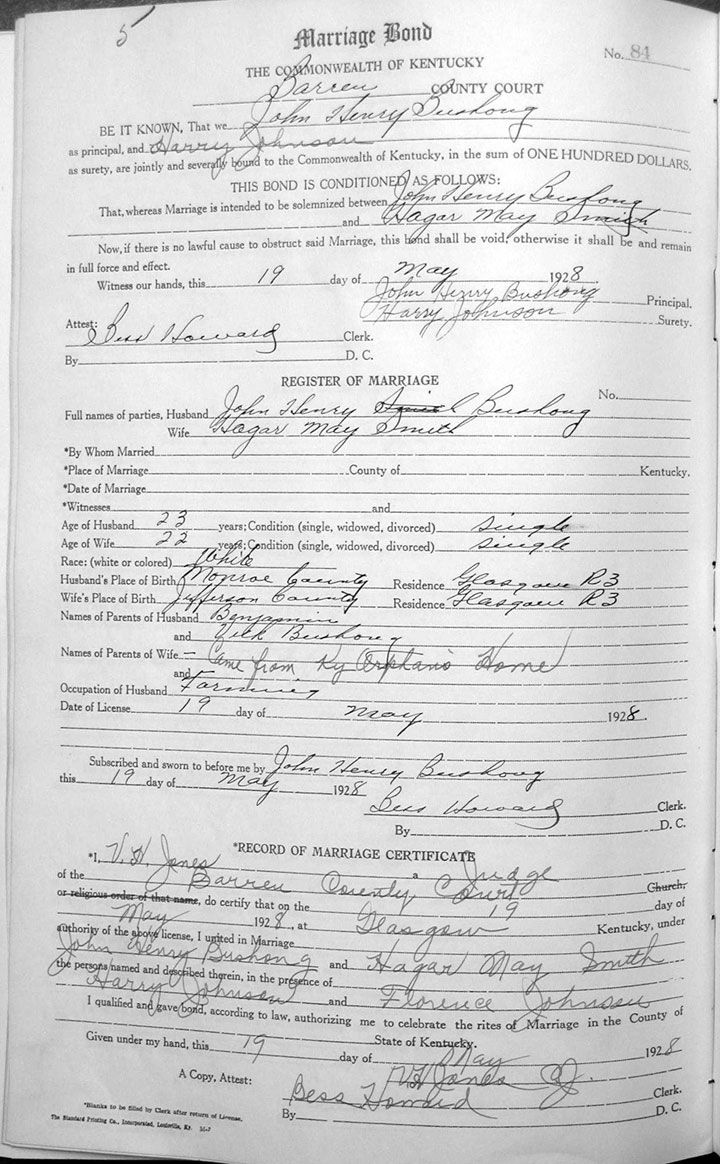 5
Marriage Bond
No. 84
THE COMMONWEALTH OF KENTUCKY
Barren COUNTY COURT
BE IT KNOWN, That we John Henry Bushong
as principal, and Harry Johnson
as surety, are jointly and severally bound to the Commonwealth of Kentucky, in the sum of ONE HUNDRED DOLLARS.
THIS BOND IS CONDITIONED AS FOLLOWS:
That, whereas Marriage is intended to be solemnized between John Henry Bushong
and Hagar May Smith
Now, if there is no lawful cause to obstruct said Marriage, this bond shall be void; otherwise it shall be and remain
in full force and effect.
Witness our hands, this 19 day of May 1928
John Henry Bushong Principal.
Harry Johnson Surety.
Attest: Bess Howard Clerk.
By D. C.
REGISTER OF MARRIAGE
No.
Full names of parties, Husband John Henry Bushong
Wife Hagar May Smith
*By Whom Married
*Place of Marriage County of Kentucky.
*Date of Marriage
*Witnesses and
Age of Husband 23 years; Condition (single, widowed, divorced) single
Age of Wife 22 years; Condition (single, widowed, divorced) single
Race: (white or colored) White
Husband's Place of Birth Monroe County Residence Glasgow R3
Wife's Place of Birth Jefferson County Residence Glasgow R3
Names of Parents of Husband Benjamin
and Bushong
Names of Parents of Wife — Came from Ky Orphans Home
and
Occupation of Husband Farming
Date of License 19 day of May 1928.
Subscribed and sworn to before me by John Henry Bushong
this 19 day of May 1928
Bess Howard Clerk.
By D. C.
*RECORD OF MARRIAGE CERTIFICATE
*I, V. H. Jones a Judge
of the Barren County Court Church,
or religious order of that name, do certify that on the 19 day of
May 1928, at Glasgow Kentucky, under
authority of the above license, I united in Marriage
John Henry Bushong and Hagar May Smith
the persons named and described therein, in the presence of
Harry Johnson and Florence Johnson
I qualified and gave bond, according to law, authorizing me to celebrate the rites of Marriage in the County of
State of Kentucky.
Given under my hand, this 19 day of May 1928
V H Jones CJ.
A Copy, Attest: Bess Howard Clerk.
By D. C.
*Blanks to be filled by Clerk after return of License.
The Standard Printing Co., Incorporated, Louisville, Ky.